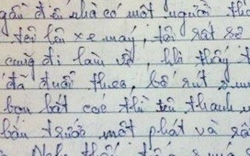 gần đến nhà có một người thi
tới lên xe máy, tôi rất sợ
cũng đi làm về, khi thấy t
đã đuổi theo, bố rút s
bọn bắt cóc thì tên thanh n
bắn trước một phát và rơ